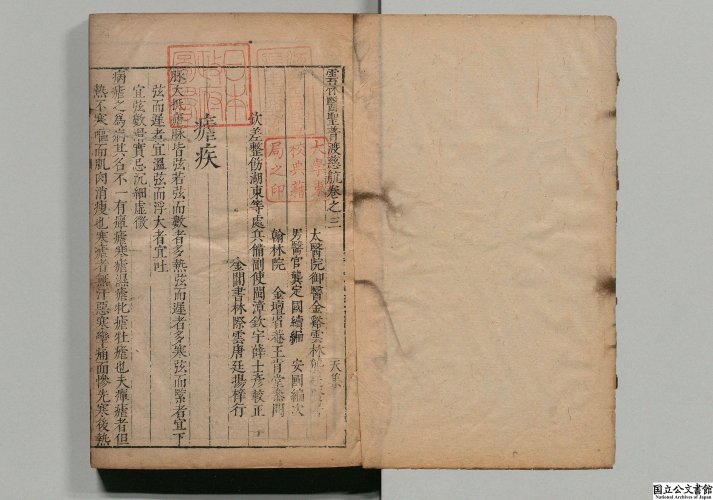 雲林醫聖普渡慈航卷之三
太醫院御醫金谿雲林
男醫官龔定國續編 安國編次
翰林院 金壇省菴王肯堂
欽差整飭湖東等處兵備副使閩漳欽宇薛士彥較正
金閶書林際雲唐廷揚梓行
瘧疾
脉大抵瘧脉皆弦若弦而數者多熱弦而遲者多寒弦而緊者宜下
弦而遲者宜溫弦而浮大者宜吐
宜弦數最實忌沉細虛微
病瘧之為病其名不一有癉瘧寒瘧溫瘧牝瘧牡瘧也夫癉瘧者但
熱不寒嘔而肌肉消瘦也寒瘧者無汗惡寒攣痛面慘先寒後熱
日本
政府
圖書
大學
校典籍
局之印
国立公文書館
National Archives of Japan